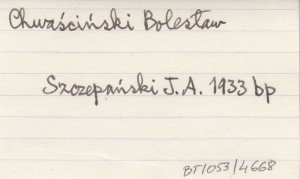 Chwaściński Bolesław
Szczepański J.A. 1933 bp
BT/053/4668